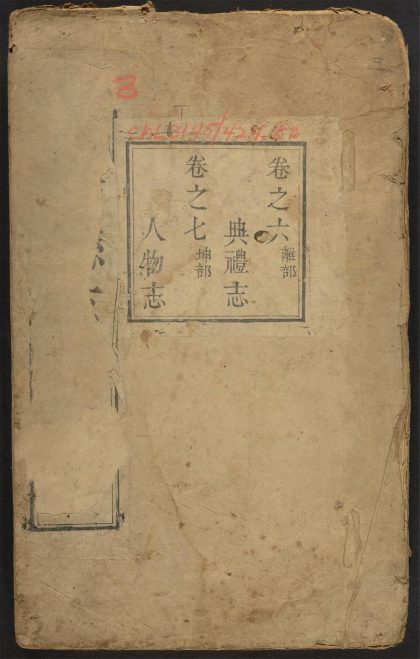 3
卷之六 離部
典禮志
卷之七 坤部
人物志